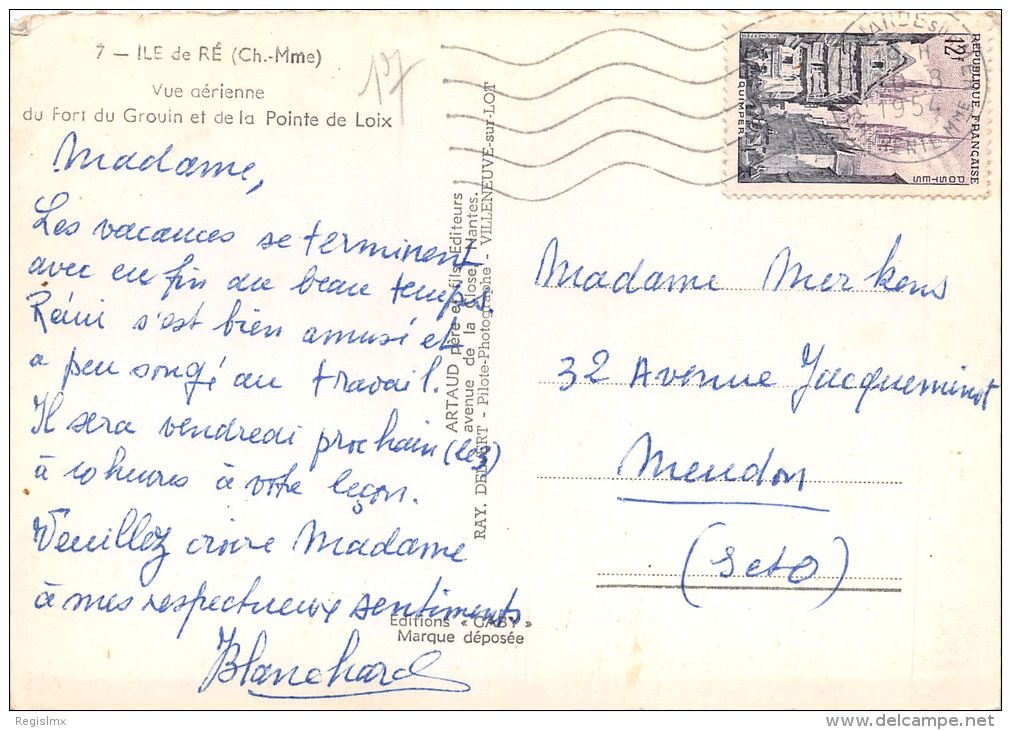 7 — ILE de RÉ (Ch.-Mme)
Vue aérienne
du Fort du Grouin et de la Pointe de Loix
17
Madame,
Les vacances se terminent
avec en fin du beau temps.
Rémi s'est bien amusé et
a peu songé au travail.
Il sera vendredi prochain
à 10 heures à votre leçon.
Veuillez croire Madame
à mes respectueux sentiments
Blanchard
ARTAUD père et fils, Editeurs
avenue de la Close, Nantes.
RAY. DELVERT - Pilote-Photographe - VILLENEUVE-sur-LOT
Editions « GABY »
Marque déposée
12F
REPUBLIQUE FRANÇAISE
POSTES
QUIMPER
1954
Madame Merkens
32 Avenue Jacqueminot
Meudon
(SetO)
Regislmx
delcampe.net